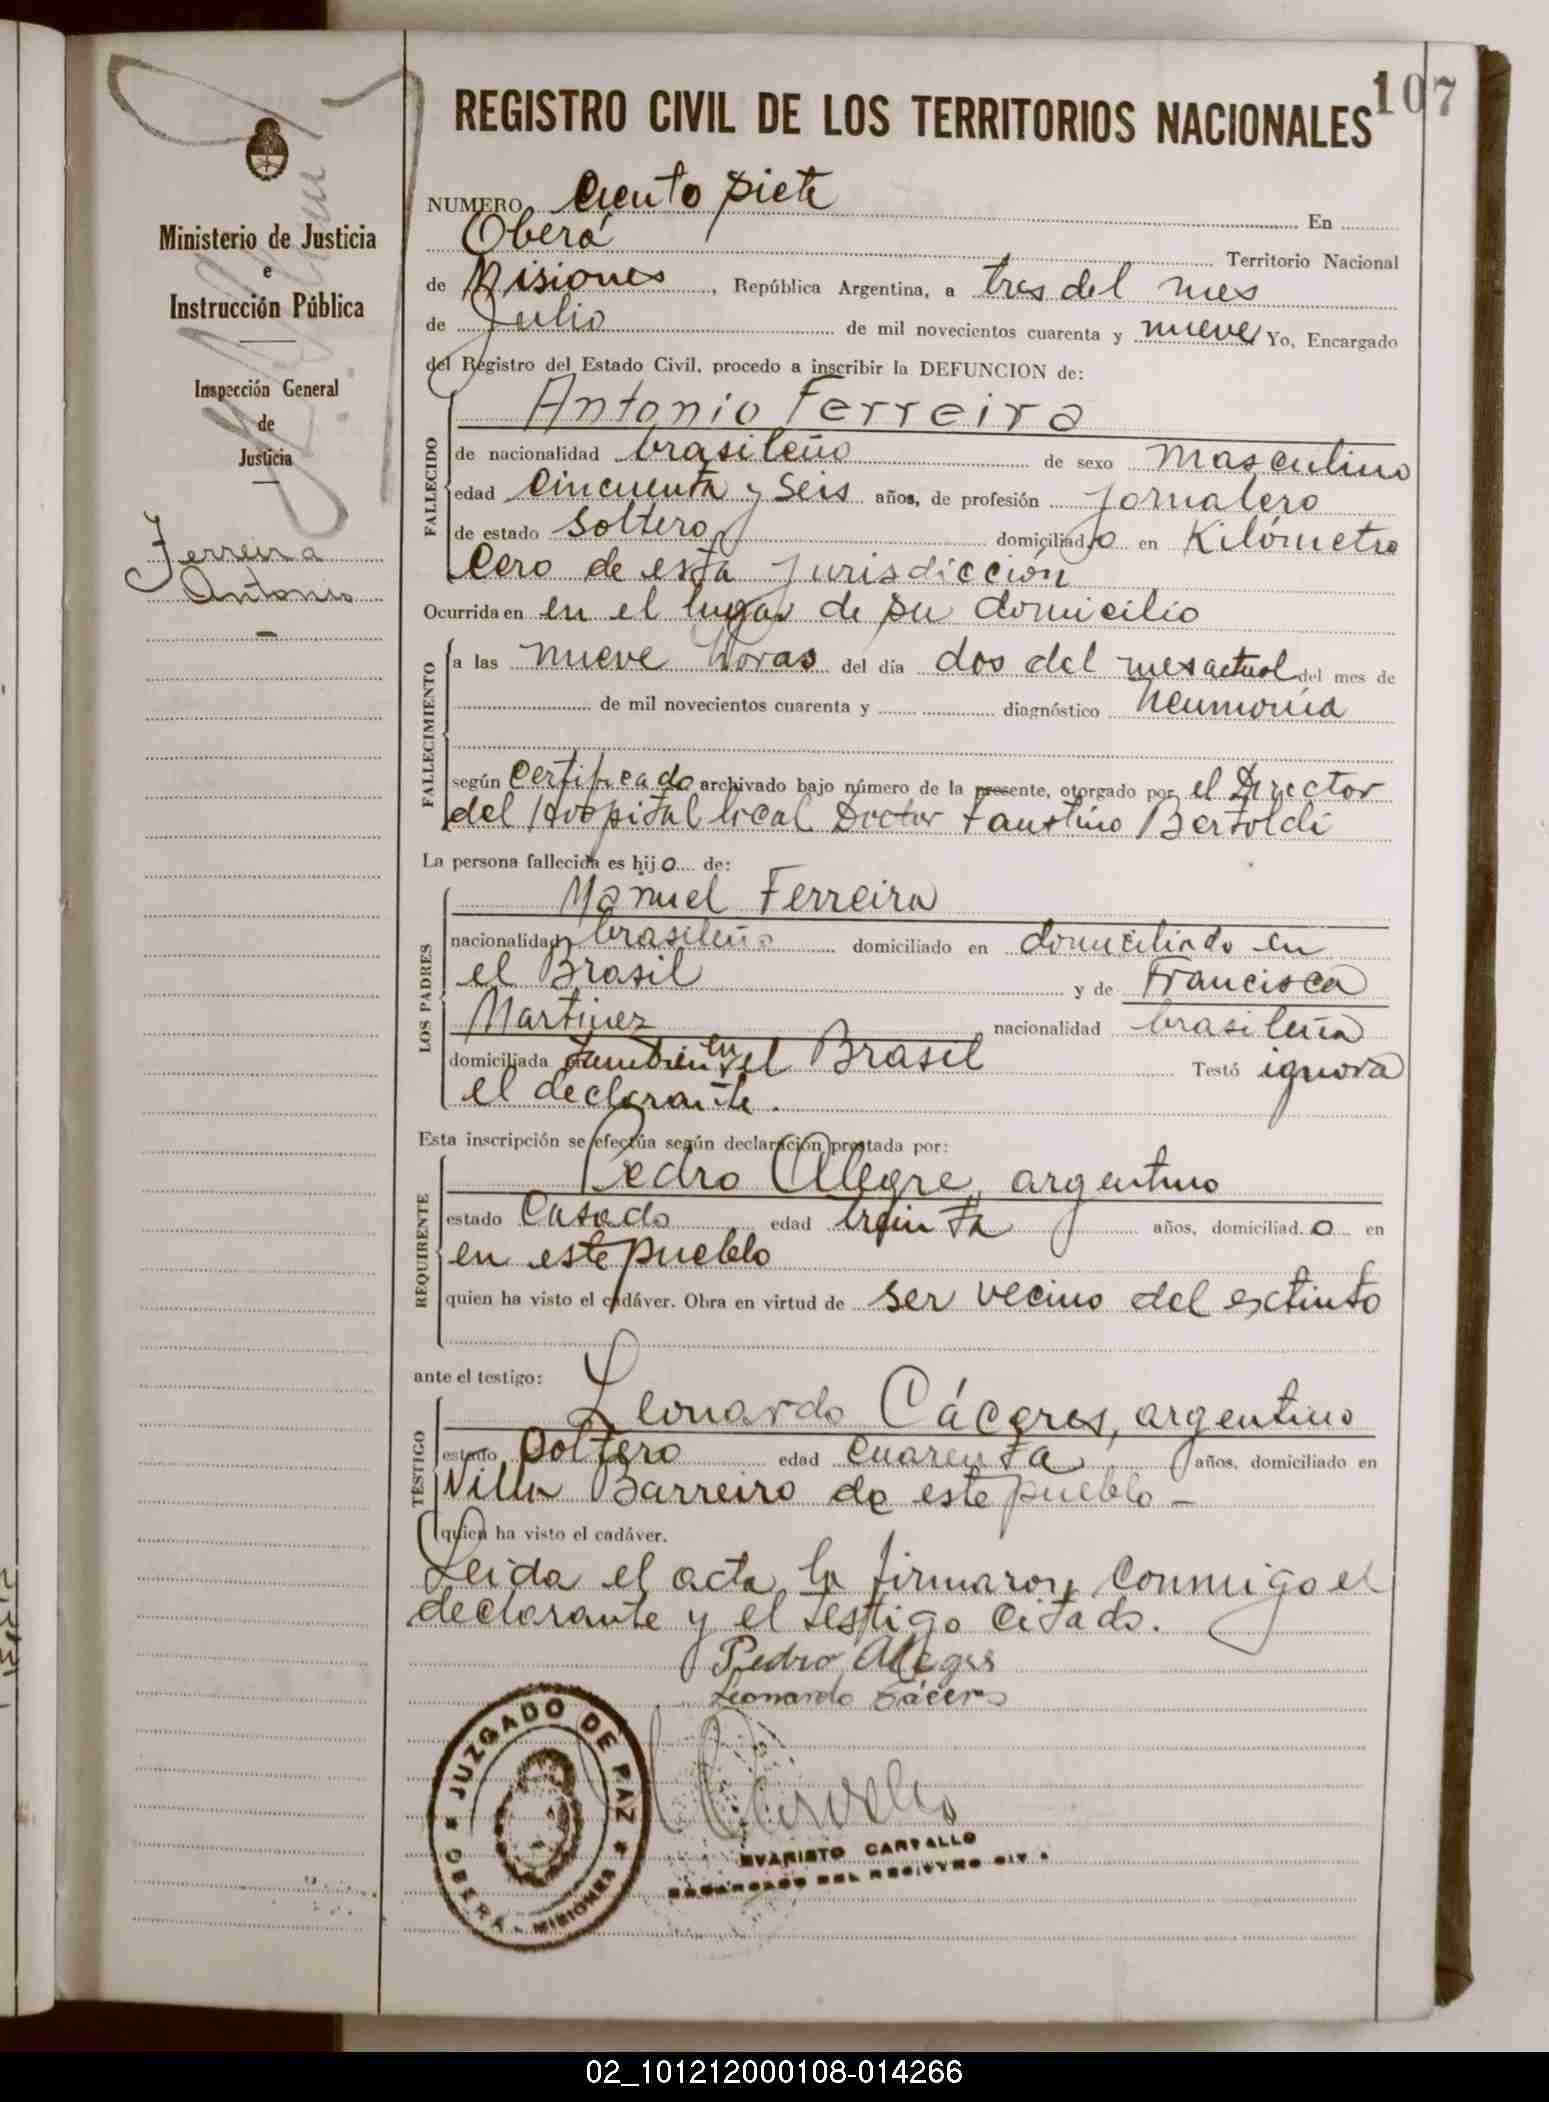 107
REGISTRO CIVIL DE LOS TERRITORIOS NACIONALES
Ministerio de Justicia
e
Instrucción Pública
Inspección General
de
Justicia
Ferreira
Antonio
NUMERO Ciento siete En
Oberá Territorio Nacional
de Misiones, República Argentina, a tres del mes
de Julio de mil novecientos cuarenta y nueve Yo, Encargado
del Registro del Estado Civil, procedo a inscribir la DEFUNCION de:
FALLECIDO
Antonio Ferreira
de nacionalidad brasileño de sexo masculino
edad cincuenta y seis años, de profesión jornalero
de estado soltero domiciliado en Kilómetro
Cero de esta jurisdicción
Ocurrida en en el lugar de su domicilio
FALLECIMIENTO
a las nueve horas del día dos del mes actual del mes de
de mil novecientos cuarenta y diagnóstico neumonía
según certificado archivado bajo número de la presente, otorgado por el Director
del Hospital local Doctor Faustino Bertoldi
La persona fallecida es hijo de:
LOS PADRES
Manuel Ferreira
nacionalidad brasileño domiciliado en domiciliado en
el Brasil y de Francisca
Martinez nacionalidad brasileña
domiciliada tambien en el Brasil Testó ignora
el declarante.
Esta inscripción se efectúa según declaración prestada por:
REQUIRENTE
Pedro Alegre, argentino
estado Casado edad treinta años, domiciliado en
en este pueblo
quien ha visto el cadáver. Obra en virtud de ser vecino del extinto
ante el testigo:
TESTIGO
Leonardo Cáceres, argentino
estado Soltero edad cuarenta años, domiciliado en
Villa Barreiro de este pueblo -
quien ha visto el cadáver.
Leida el acta, la firmaron conmigo el
declarante y el testigo citado.
Pedro Alegre
Leonardo Cáceres
JUZGADO DE PAZ
OBERÁ - MISIONES
EVARISTO CARVALLO
ENCARGADO DEL REGISTRO CIVIL
02_101212000108-014266